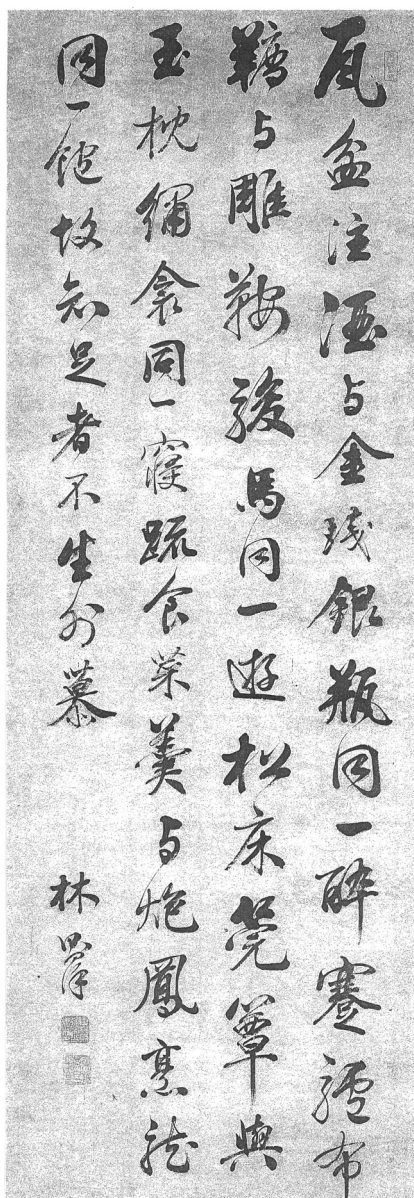 瓦盆注酒与金琖銀瓶同一醉蹇驢布
韉与雕鞍駿馬同一遊松床莞簟與
玉枕繡衾同一寢蔬食菜羹与炮鳳烹龍
同一飽故知足者不生外慕
林